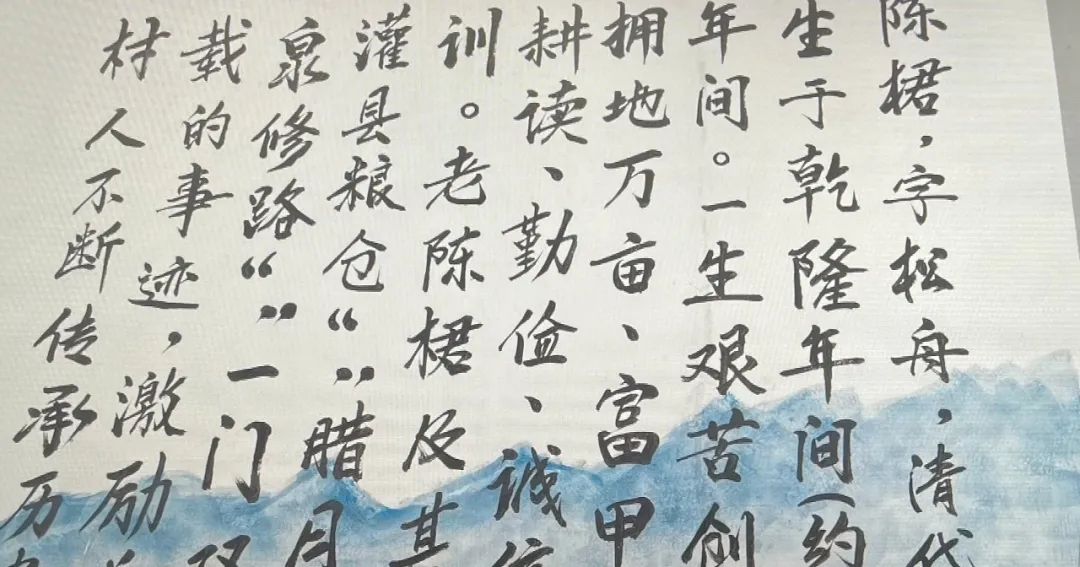 陈桾，字松舟，清代
生于乾隆年间（约
年间。一生艰苦创
拥地万亩、富甲
耕读、勤俭、诚信
训。老陈桾及其
灌县粮仓“”腊月
泉修路“”一门
载的事迹，激励
材人不断传承历